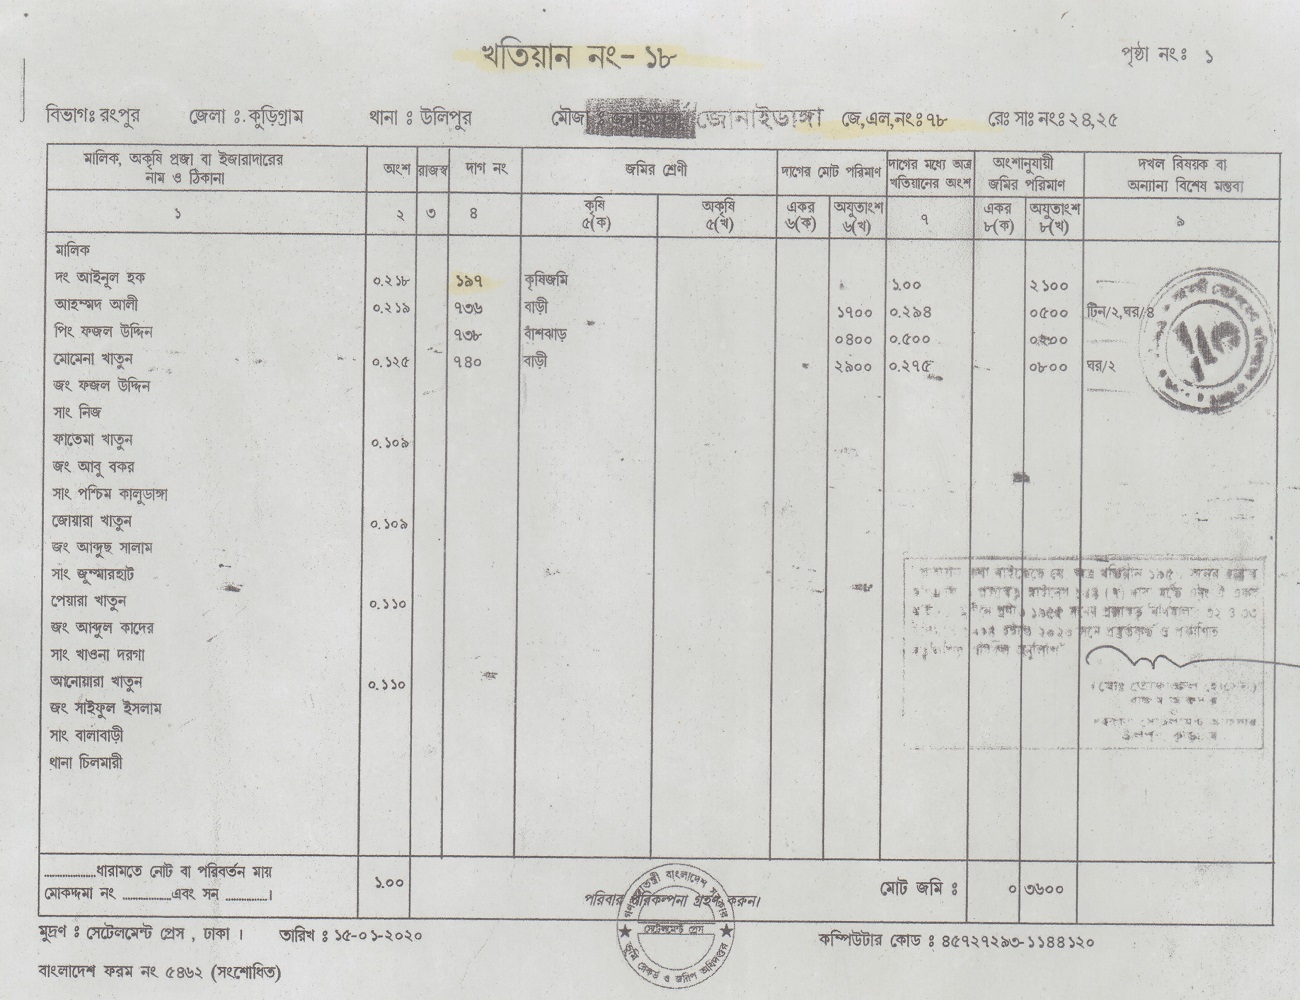 খতিয়ান নং- ১৮
পৃষ্ঠা নং ঃ ১
বিভাগঃ রংপুর জেলা ঃ কুড়িগ্রাম থানা ঃ উলিপুর মৌজা ঃ জোনাইডাঙ্গা জে,এল,নং ঃ ৭৮ রেঃ সাঃ নং ঃ ২৪,২৫
মালিক, অকৃষি প্রজা বা ইজারাদারের নাম ও ঠিকানা
অংশ
রাজস্ব
দাগ নং
জমির শ্রেণী
দাগের মোট পরিমাণ
দাগের মধ্যে অত্র খতিয়ানের অংশ
অংশানুযায়ী জমির পরিমাণ
দখল বিষয়ক বা অন্যান্য বিশেষ মন্তব্য
১ ২ ৩ ৪ কৃষি ৫(ক) অকৃষি ৫(খ) একর ৬(ক) অযুতাংশ ৬(খ) ৭ একর ৮(ক) অযুতাংশ ৮(খ) ৯
মালিক
দং আইনূল হক ০.২১৮ ১৯৭ কৃষিজমি ১.০০ ২১০০
আহম্মদ আলী ০.২১৯ ৭৩৬ বাড়ী ১৭০০ ০.২৯৪ ০৫০০ টিন/২,ঘর/৪
পিং ফজল উদ্দিন ৭৩৮ বাঁশঝাড় ০৪০০ ০.৫০০ ০২০০
মোমেনা খাতুন ০.১২৫ ৭৪০ বাড়ী ২৯০০ ০.২৭৫ ০৮০০ ঘর/২
জং ফজল উদ্দিন
সাং নিজ
ফাতেমা খাতুন ০.১০৯
জং আবু বকর
সাং পশ্চিম কালুডাঙ্গা
জোয়ারা খাতুন ০.১০৯
জং আব্দুছ সালাম
সাং জুম্মারহাট
পেয়ারা খাতুন ০.১১০
জং আব্দুল কাদের
সাং খাওনা দরগা
আনোয়ারা খাতুন ০.১১০
জং সাইফুল ইসলাম
সাং বালাবাড়ী
থানা চিলমারী
..............ধারামতে নোট বা পরিবর্তন মায়
মোকদ্দমা নং .............এবং সন ...........।
১.০০
পরিবার পরিকল্পনা গ্রহণ করুন।
মোট জমি ঃ ০ ৩৬০০
গণপ্রজাতন্ত্রী বাংলাদেশ সরকার
সেটেলমেন্ট প্রেস
ভূমি রেকর্ড ও জরিপ অধিদপ্তর
মুদ্রণ ঃ সেটেলমেন্ট প্রেস , ঢাকা । তারিখ ঃ ১৫-০১-২০২০
কম্পিউটার কোড ঃ ৪৫৭২৭২৯৩-১১৪৪১২০
বাংলাদেশ ফরম নং ৫৪৬২ (সংশোধিত)